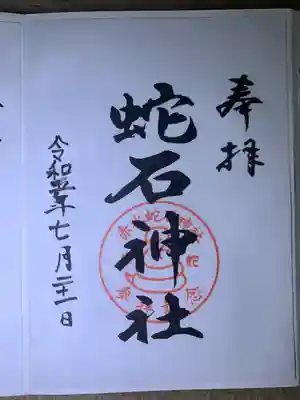 奉拝
蛇石神社
令和五年七月二十一日